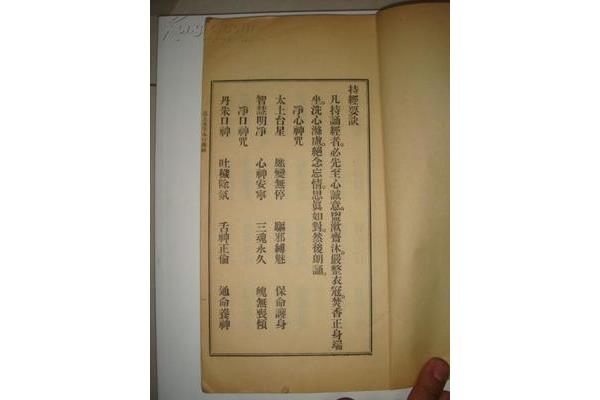 持經要訣
凡持誦經者。必先至心誠意。盥漱齋沐。嚴整衣冠。焚香正身端
坐。洗心滌慮。絕念忘情。思眞如對。然後朗誦。
淨心神咒
太上台星 應變無停 驅邪縛魅 保命護身
智慧明凈 心神安寧 三魂永久 魄無喪傾
淨口神咒
丹朱口神 吐穢除氛 舌神正倫 通命養神